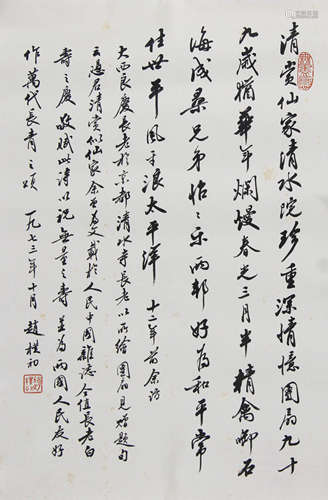 清赏仙家清水院珍重深情憶團扇九十
九歲猶華年爛熳春光三月半精禽銜石
海成桑兄弟怡〻樂兩邦好為和平常
住世平風浪太平洋 十二年前余訪
大西良慶長老於京都清水寺長老以所繪團扇見贈題句
云憑君清賞似仙家余曾為文載於人民中國雜誌今值長老白
壽之慶敬賦此詩以祝無量之壽並為兩國人民友好
作萬代長青之頌 一九七三年十月 趙樸初